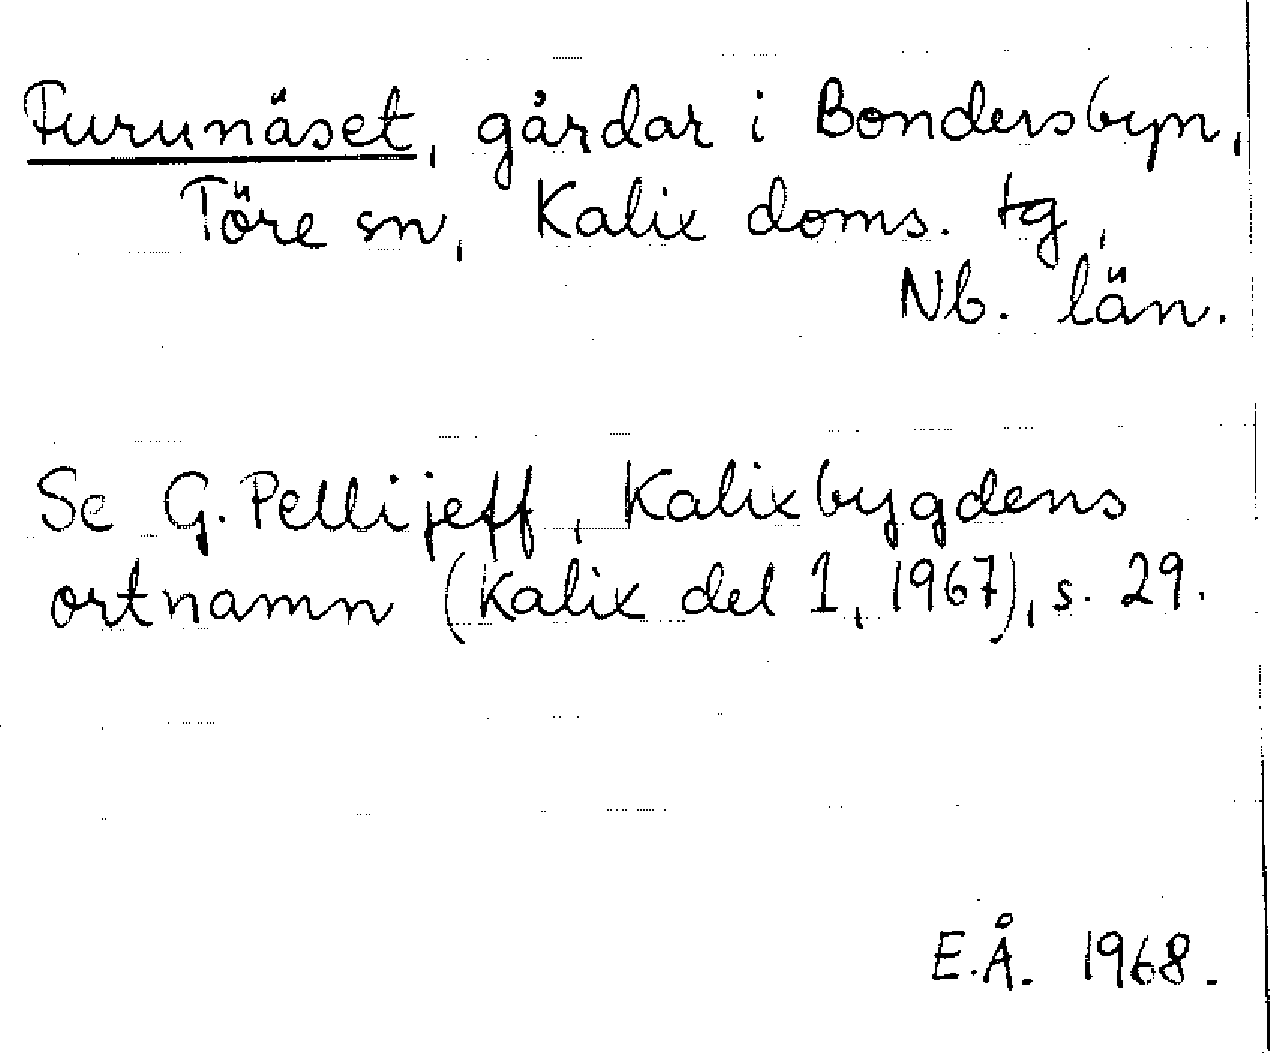 Furunäset, gårdar i Bondersbyn,
Töre sn, Kalix doms. tg,
Nb. län.
Se G. Pellijeff, Kalixbygdens
ortnamn (Kalix del 1, 1967), s. 29.
E.Å. 1968.